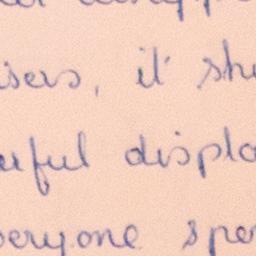 isers, it sh
erful displa
veryone spe